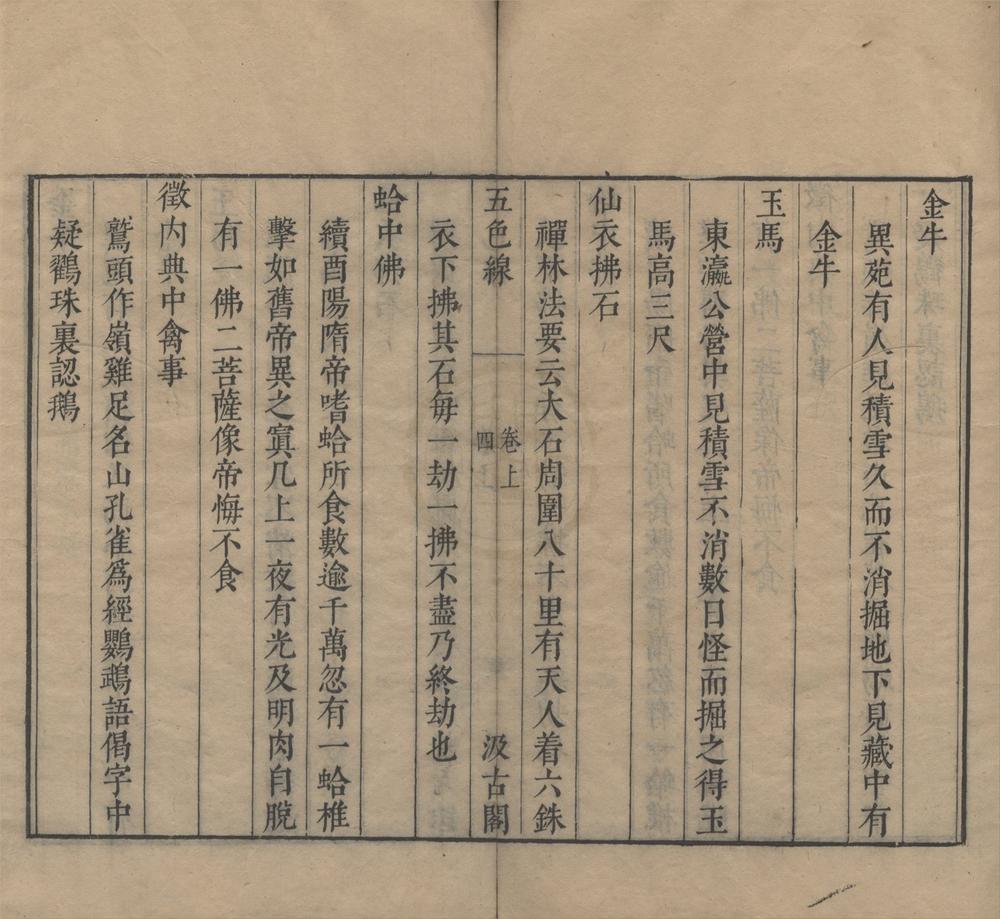 金牛
異苑有人見積雪久而不消掘地下見藏中有
金牛
玉馬
東瀛公營中見積雪不消數日怪而掘之得玉
馬高三尺
仙衣拂石
禪林法要云大石周圍八十里有天人着六銖
五色線 卷上 四 汲古閣
衣下拂其石每一劫一拂不盡乃終劫也
蛤中佛
續酉陽隋帝嗜蛤所食數逾千萬忽有一蛤椎
擊如舊帝異之寘几上一夜有光及明肉自脫
有一佛二菩薩像帝悔不食
徵内典中禽事
鷲頭作嶺雞足名山孔雀爲經鸚鵡語偈字中
疑鸛珠裏認鵝